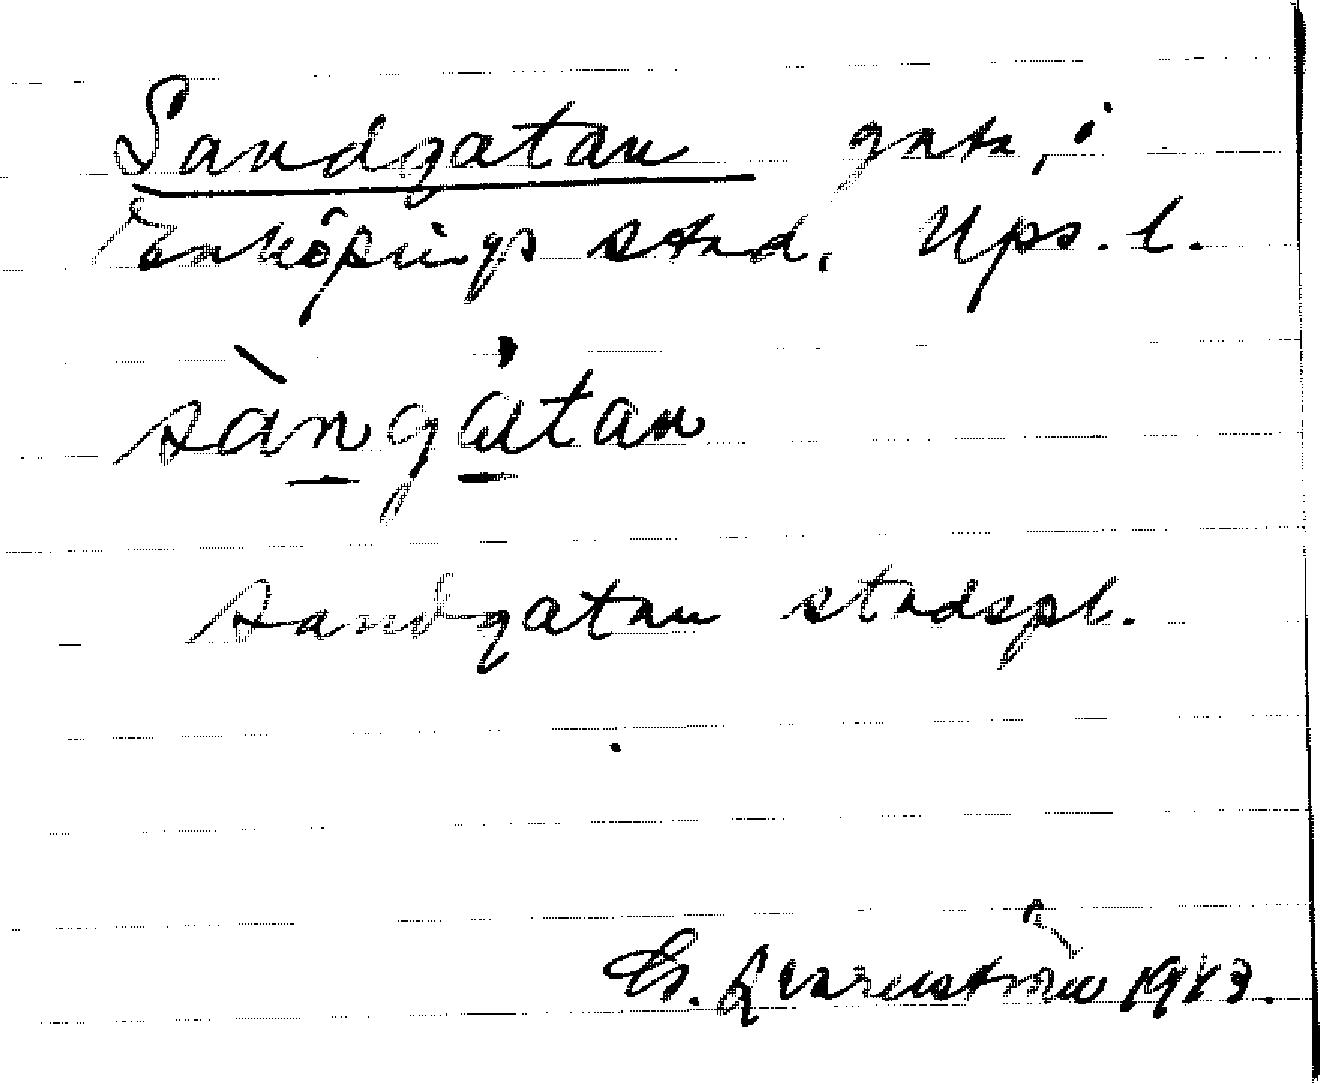 Sandgatan gata, i
Enköpings stad, Ups. l.
sàngátan
sandgatan stadspl.
Er. Qvarnström 1913.